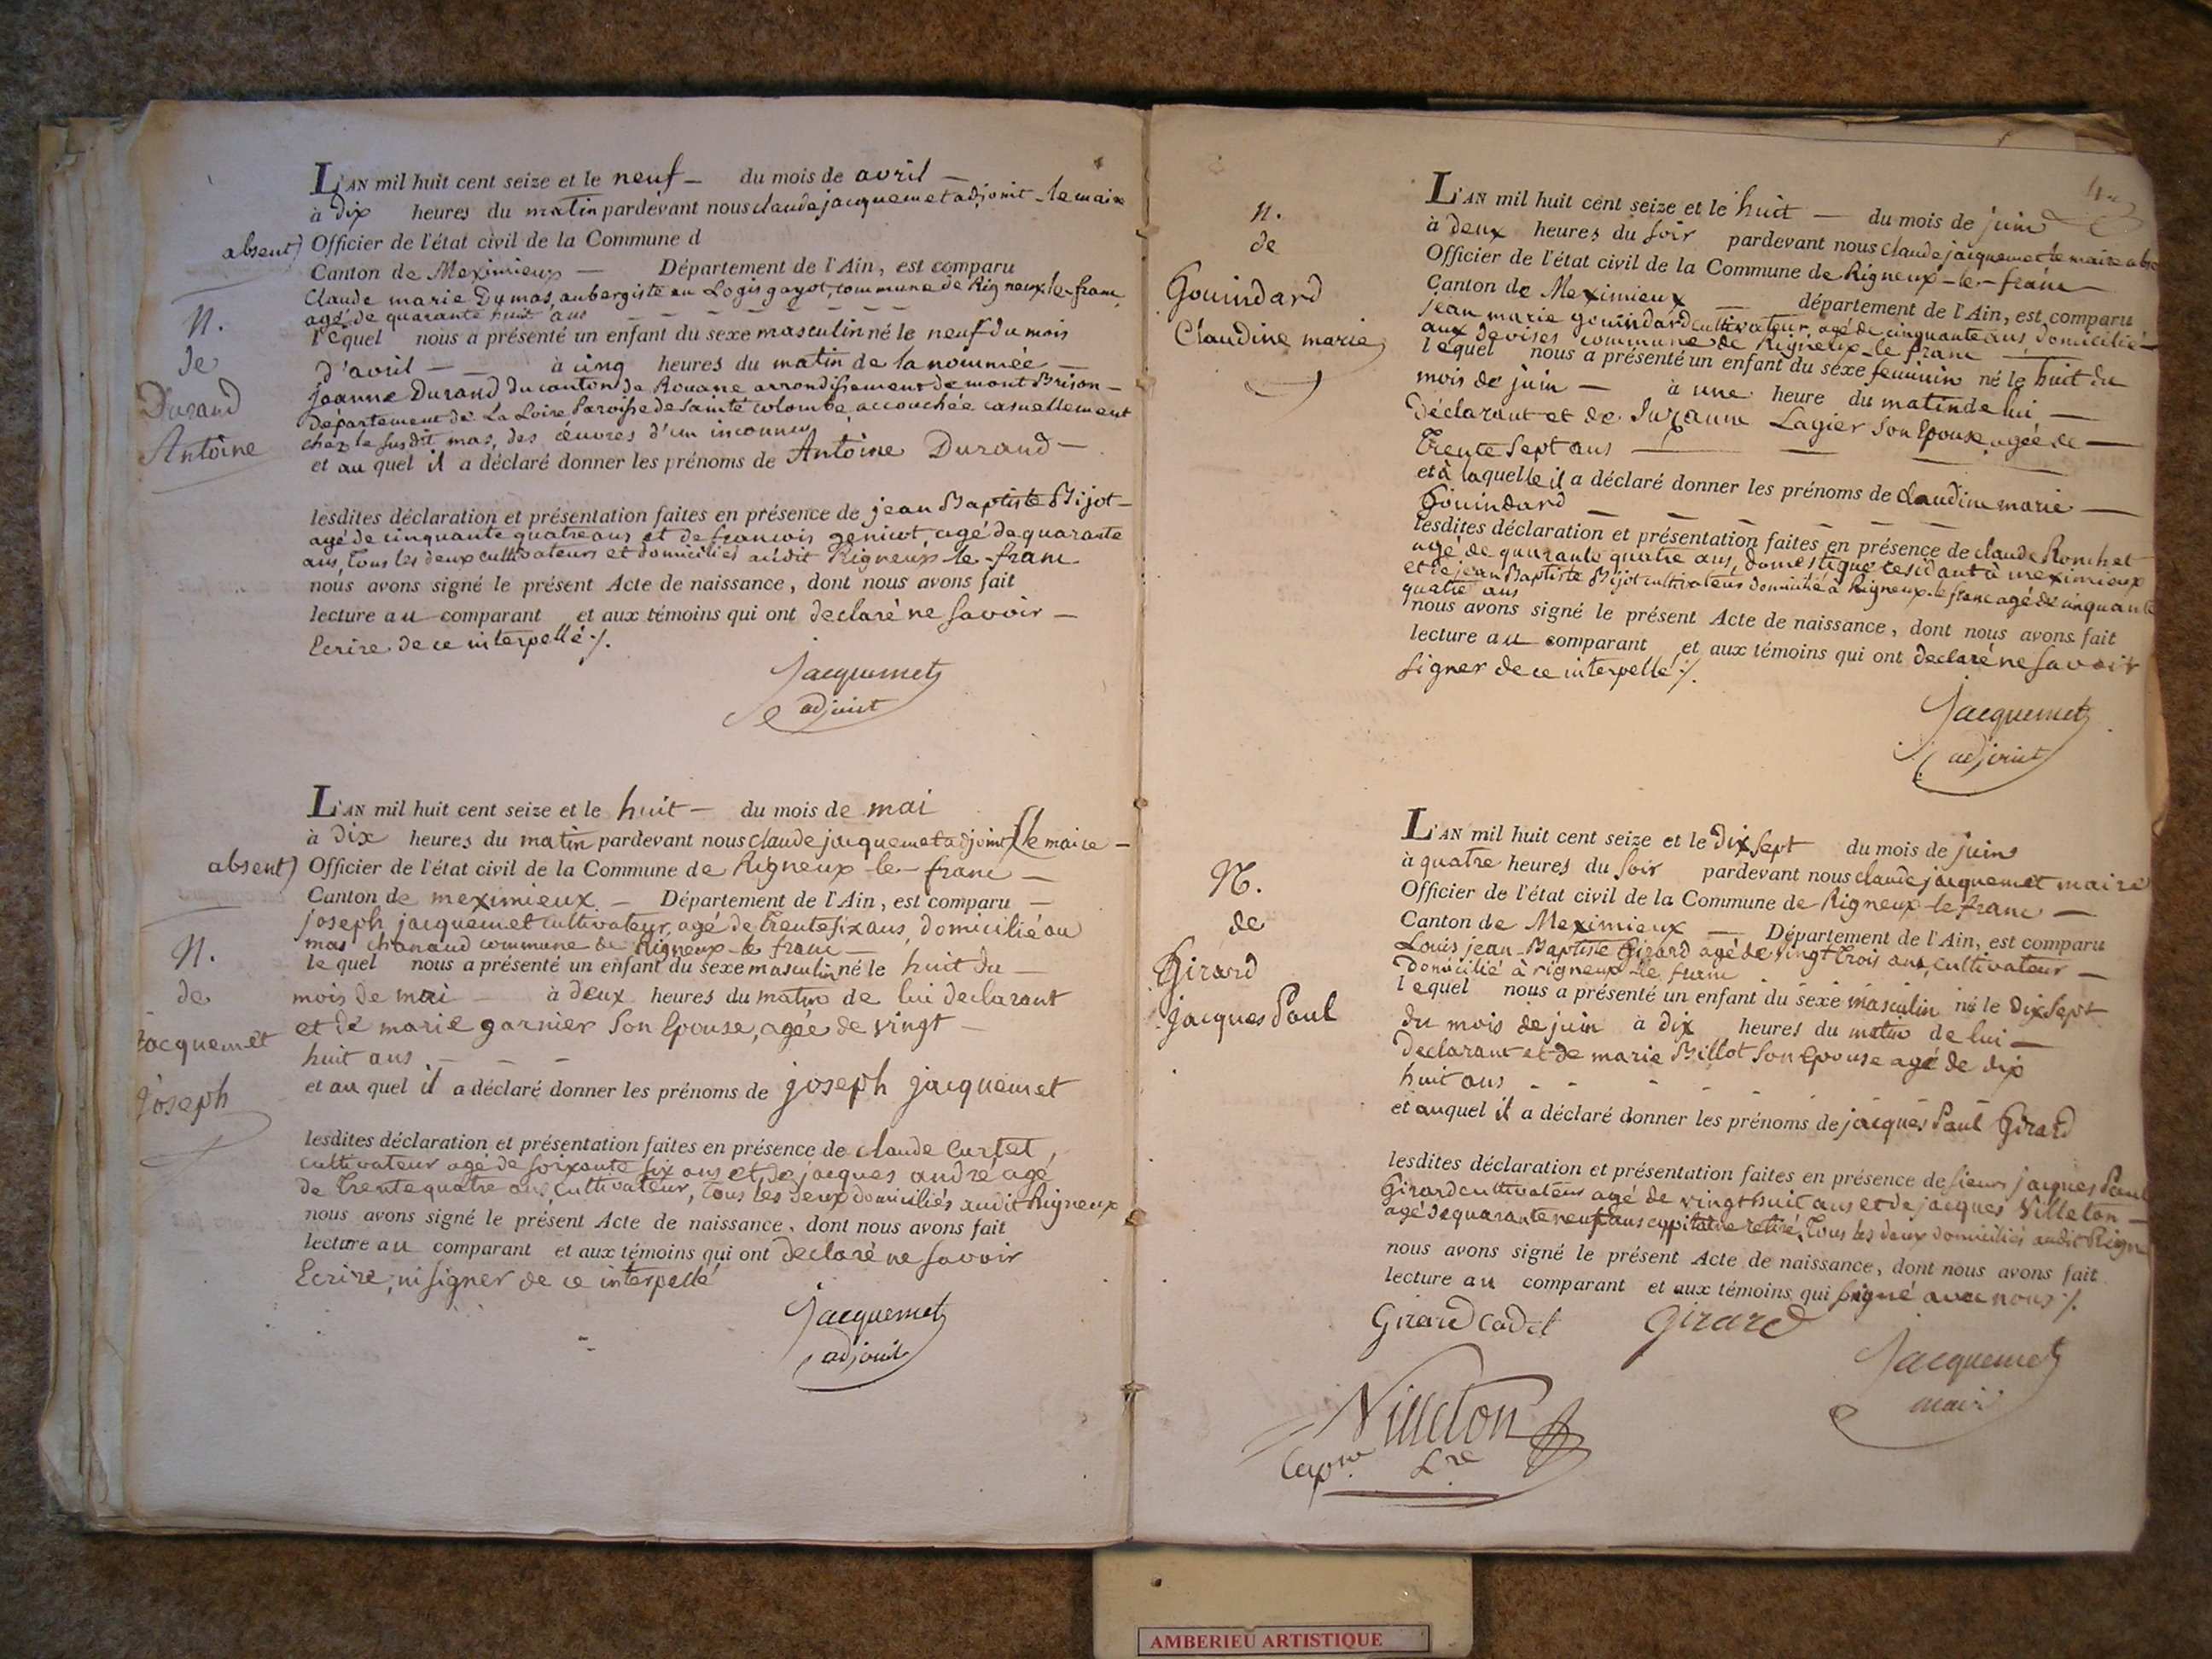 L'AN mil huit cent seize et le neuf — du mois de avril —
à dix heures du matin pardevant nous claude jacquemet adjoint - le maire
absent) Officier de l'état civil de la Commune d
Canton de Meximieux — Département de l'Ain, est comparu
Claude marie Dumas, aubergiste au Logis gayot, commune de Rigneux le franc
agé de quarante huit ans — — — — — —
lequel nous a présenté un enfant du sexe masculin né le neuf du mois
d'avril — — à cinq heures du matin de la nommée —
jeanne Durand du canton de Rouane arrondissement de mont Brison —
Département de La Loire Paroisse de sainte colombe, accouchée casuellement
chez le susdit mas, des œuvres d'un inconnu,
et au quel il a déclaré donner les prénoms de Antoine Durand —
lesdites déclaration et présentation faites en présence de jean Baptiste Bijot —
agé de cinquante quatre ans et de francois genicot agé de quarante
ans, Tous les deux cultivateurs et domiciliés audit Rigneux le franc
nous avons signé le présent Acte de naissance, dont nous avons fait
lecture au comparant et aux témoins qui ont declaré ne savoir —
Ecrire de ce interpellé ./.
Jacquemet
adjoint
N.
de
Durand
Antoine
L'AN mil huit cent seize et le huit — du mois de mai
à dix heures du matin pardevant nous claude jacquemet adjoint le maire —
absent) Officier de l'état civil de la Commune de Rigneux-le-franc —
Canton de meximieux — Département de l'Ain, est comparu —
joseph jacquemet cultivateur, agé de trente six ans, domicilié au
mas chanaud commune de Rigneux-le franc —
le quel nous a présenté un enfant du sexe masculin né le huit du —
mois de mai — à deux heures du matin de lui declarant
et de marie garnier son Epouse, agée de vingt —
huit ans — — —
et au quel il a déclaré donner les prénoms de joseph jacquemet
lesdites déclaration et présentation faites en présence de claude Curtet,
cultivateur agé de soixante six ans et de jacques andré agé
de trente quatre ans cultivateur, tous les deux domiciliés audit Rigneux
nous avons signé le présent Acte de naissance, dont nous avons fait
lecture au comparant et aux témoins qui ont declaré ne savoir
Ecrire, ni signer de ce interpellé
Jacquemet
adjoint
N.
de
jacquemet
joseph
L'AN mil huit cent seize et le huit — du mois de juin
à deux heures du soir pardevant nous claude jacquemet le maire abs
Officier de l'état civil de la Commune de Rigneux-le-franc —
Canton de Meximieux — département de l'Ain, est comparu
jean marie gouindard cultivateur, agé de cinquante ans domicilié —
aux devises commune de Rigneux-le franc —
lequel nous a présenté un enfant du sexe feminin né le huit du
mois de juin — à une heure du matin de lui —
Déclarant et de Suzanne Lagier son Epouse, agée de —
Trente sept ans — — — —
et à laquelle il a déclaré donner les prénoms de Claudine marie —
Gouindard — — — — —
lesdites déclaration et présentation faites en présence de claude Ronchet
agé de quarante quatre ans, domestique residant à meximieux
et de jean Baptiste Bijot cultivateur domicilié à Rigneux-le franc agé de cinquante
quatre ans
nous avons signé le présent Acte de naissance, dont nous avons fait
lecture au comparant et aux témoins qui ont declaré ne savoir
signer de ce interpellé ./.
Jacquemet
adjoint
n.
de
Gouindard
Claudine marie
L'AN mil huit cent seize et le dix sept du mois de juin
à quatre heures du soir pardevant nous claude jacquemet maire
Officier de l'état civil de la Commune de Rigneux-le franc —
Canton de Meximieux — Département de l'Ain, est comparu
Louis jean-Baptiste Girard agé de vingt trois ans, cultivateur —
Domicilié à rigneux-le franc
lequel nous a présenté un enfant du sexe masculin né le Dix sept
du mois de juin à dix heures du matin de lui —
Declarant et de marie Billot son Epouse agé de dix
huit ans - - - -
et auquel il a déclaré donner les prénoms de jacques Paul Girard
lesdites déclaration et présentation faites en présence de sieurs jacques Paul
Girard cultivateur agé de vingt huit ans et de jacques Villeton —
agé de quarante neuf ans capitaine retiré, Tous les deux domiciliés audit Rigne
nous avons signé le présent Acte de naissance, dont nous avons fait
lecture au comparant et aux témoins qui signé avec nous ./.
Girard Cadet Girard
Jacquemet
maire
Villeton
N.
de
Girard
jacques Paul
AMBERIEU ARTISTIQUE